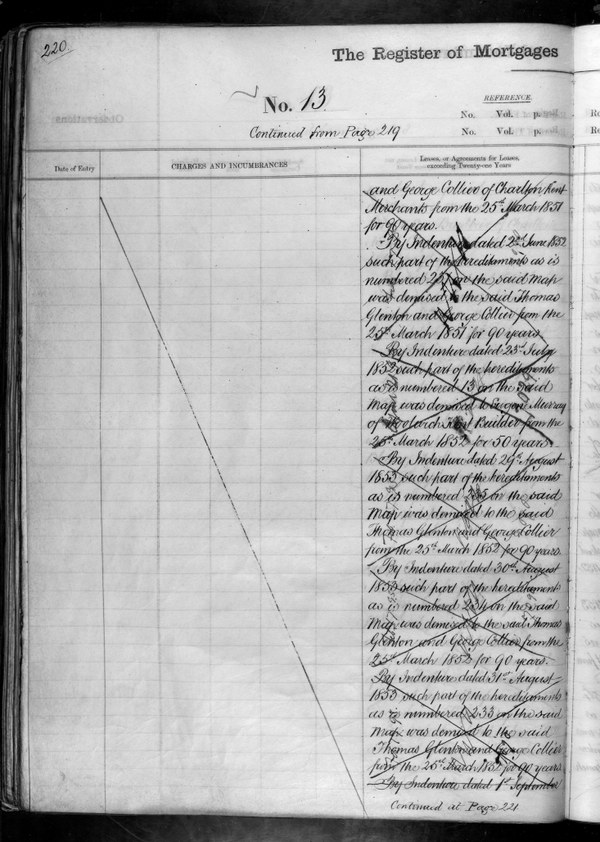 220
The Register of Mortgages
No. 13
REFERENCE.
No. Vol. p.
Continued from Page 219
No. Vol. p.
Date of Entry
CHARGES AND INCUMBRANCES
Leases, or Agreements for Leases,
exceeding Twenty-one Years
and George Collier of Charlton Kent
Merchants from the 25th March 1851
for 90 years.
By Indenture dated 2nd June 1852
such part of the hereditaments as is
numbered on the said Map
was demised to the said Thomas
Glenton and George Collier from the
25th March 1851 for 90 years
By Indenture dated 23d July
1852 such part of the hereditaments
as is numbered 13 on the said
Map was demised to Murray
of Woolwich Kent Builder from the
25th March 1852 for 50 years
By Indenture dated 29th August
1853 such part of the hereditaments
as is numbered on the said
Map was demised to the said
Thomas Glenton and George Collier
from the 25th March 1852 for 90 years
By Indenture dated 30th August
1853 such part of the hereditaments
as is numbered 234 on the said
Map was demised to the said Thomas
Glenton and George Collier from the
25th March 1852 for 90 years.
By Indenture dated 31st August
1853 such part of the hereditaments
as is numbered 233 on the said
Map was demised to the said
Thomas Glenton and George Collier
from the 25th March for 90 years
By Indenture dated 1st September
Continued at Page 221